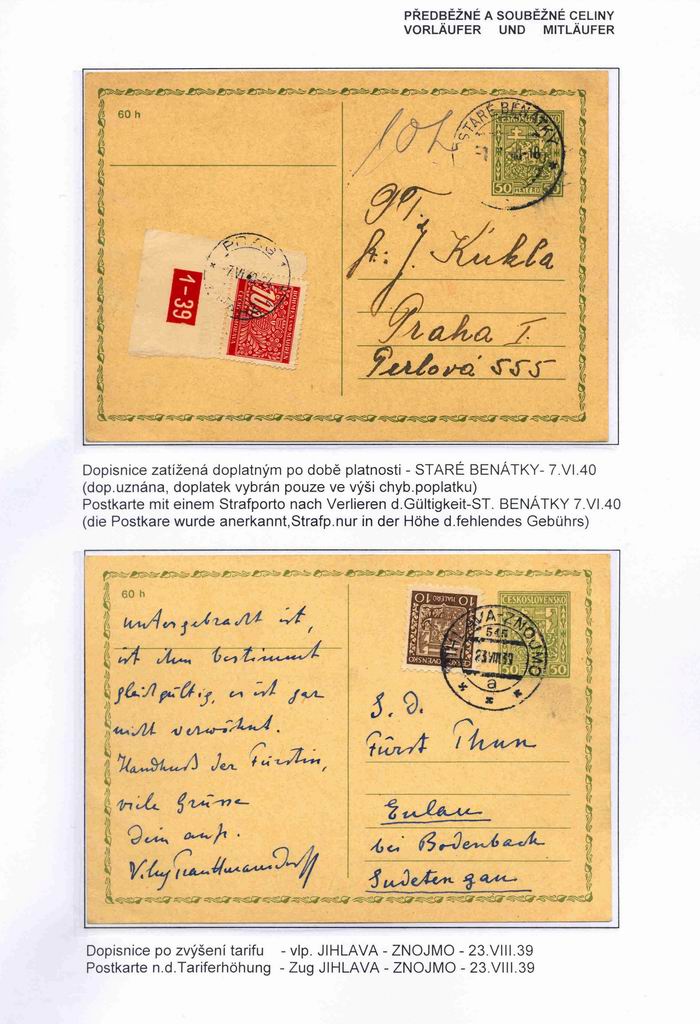 PŘEDBĚŽNÉ A SOUBĚŽNÉ CELINY
VORLÄUFER UND MITLÄUFER
60 h
10h
STARÉ BENÁTKY
ČESKOSLOVENSKO
50 HALÉŘŮ 50
PT.
Fr. J. Kukla
Praha I.
Perlová 555
1-39
PRAHA 1
7.VI.40
10
BÖHMEN UND MÄHREN
ČECHY A MORAVA
Dopisnice zatížená doplatným po době platnosti - STARÉ BENÁTKY- 7.VI.40
(dop.uznána, doplatek vybrán pouze ve výši chyb.poplatku)
Postkarte mit einem Strafporto nach Verlieren d.Gültigkeit-ST. BENÁTKY 7.VI.40
(die Postkare wurde anerkannt,Strafp.nur in der Höhe d.fehlendes Gebührs)
60 h
untergebracht ist,
ist ihm bestimmt
gleichgültig, er ist gar
nicht verwöhnt.
Handkuß der Fürstin,
viele Grüsse
Dein aufr.
Trauttmansdorff
10 HALÉŘŮ 10
ČESKOSLOVENSKO
ČESKOSLOVENSKO
50 50
JIHLAVA-ZNOJMO
23.VIII.39
a
S. D.
Fürst Thun
Eulau
bei Bodenbach
Sudetengau
Dopisnice po zvýšení tarifu - vlp. JIHLAVA - ZNOJMO - 23.VIII.39
Postkarte n.d.Tariferhöhung - Zug JIHLAVA - ZNOJMO - 23.VIII.39